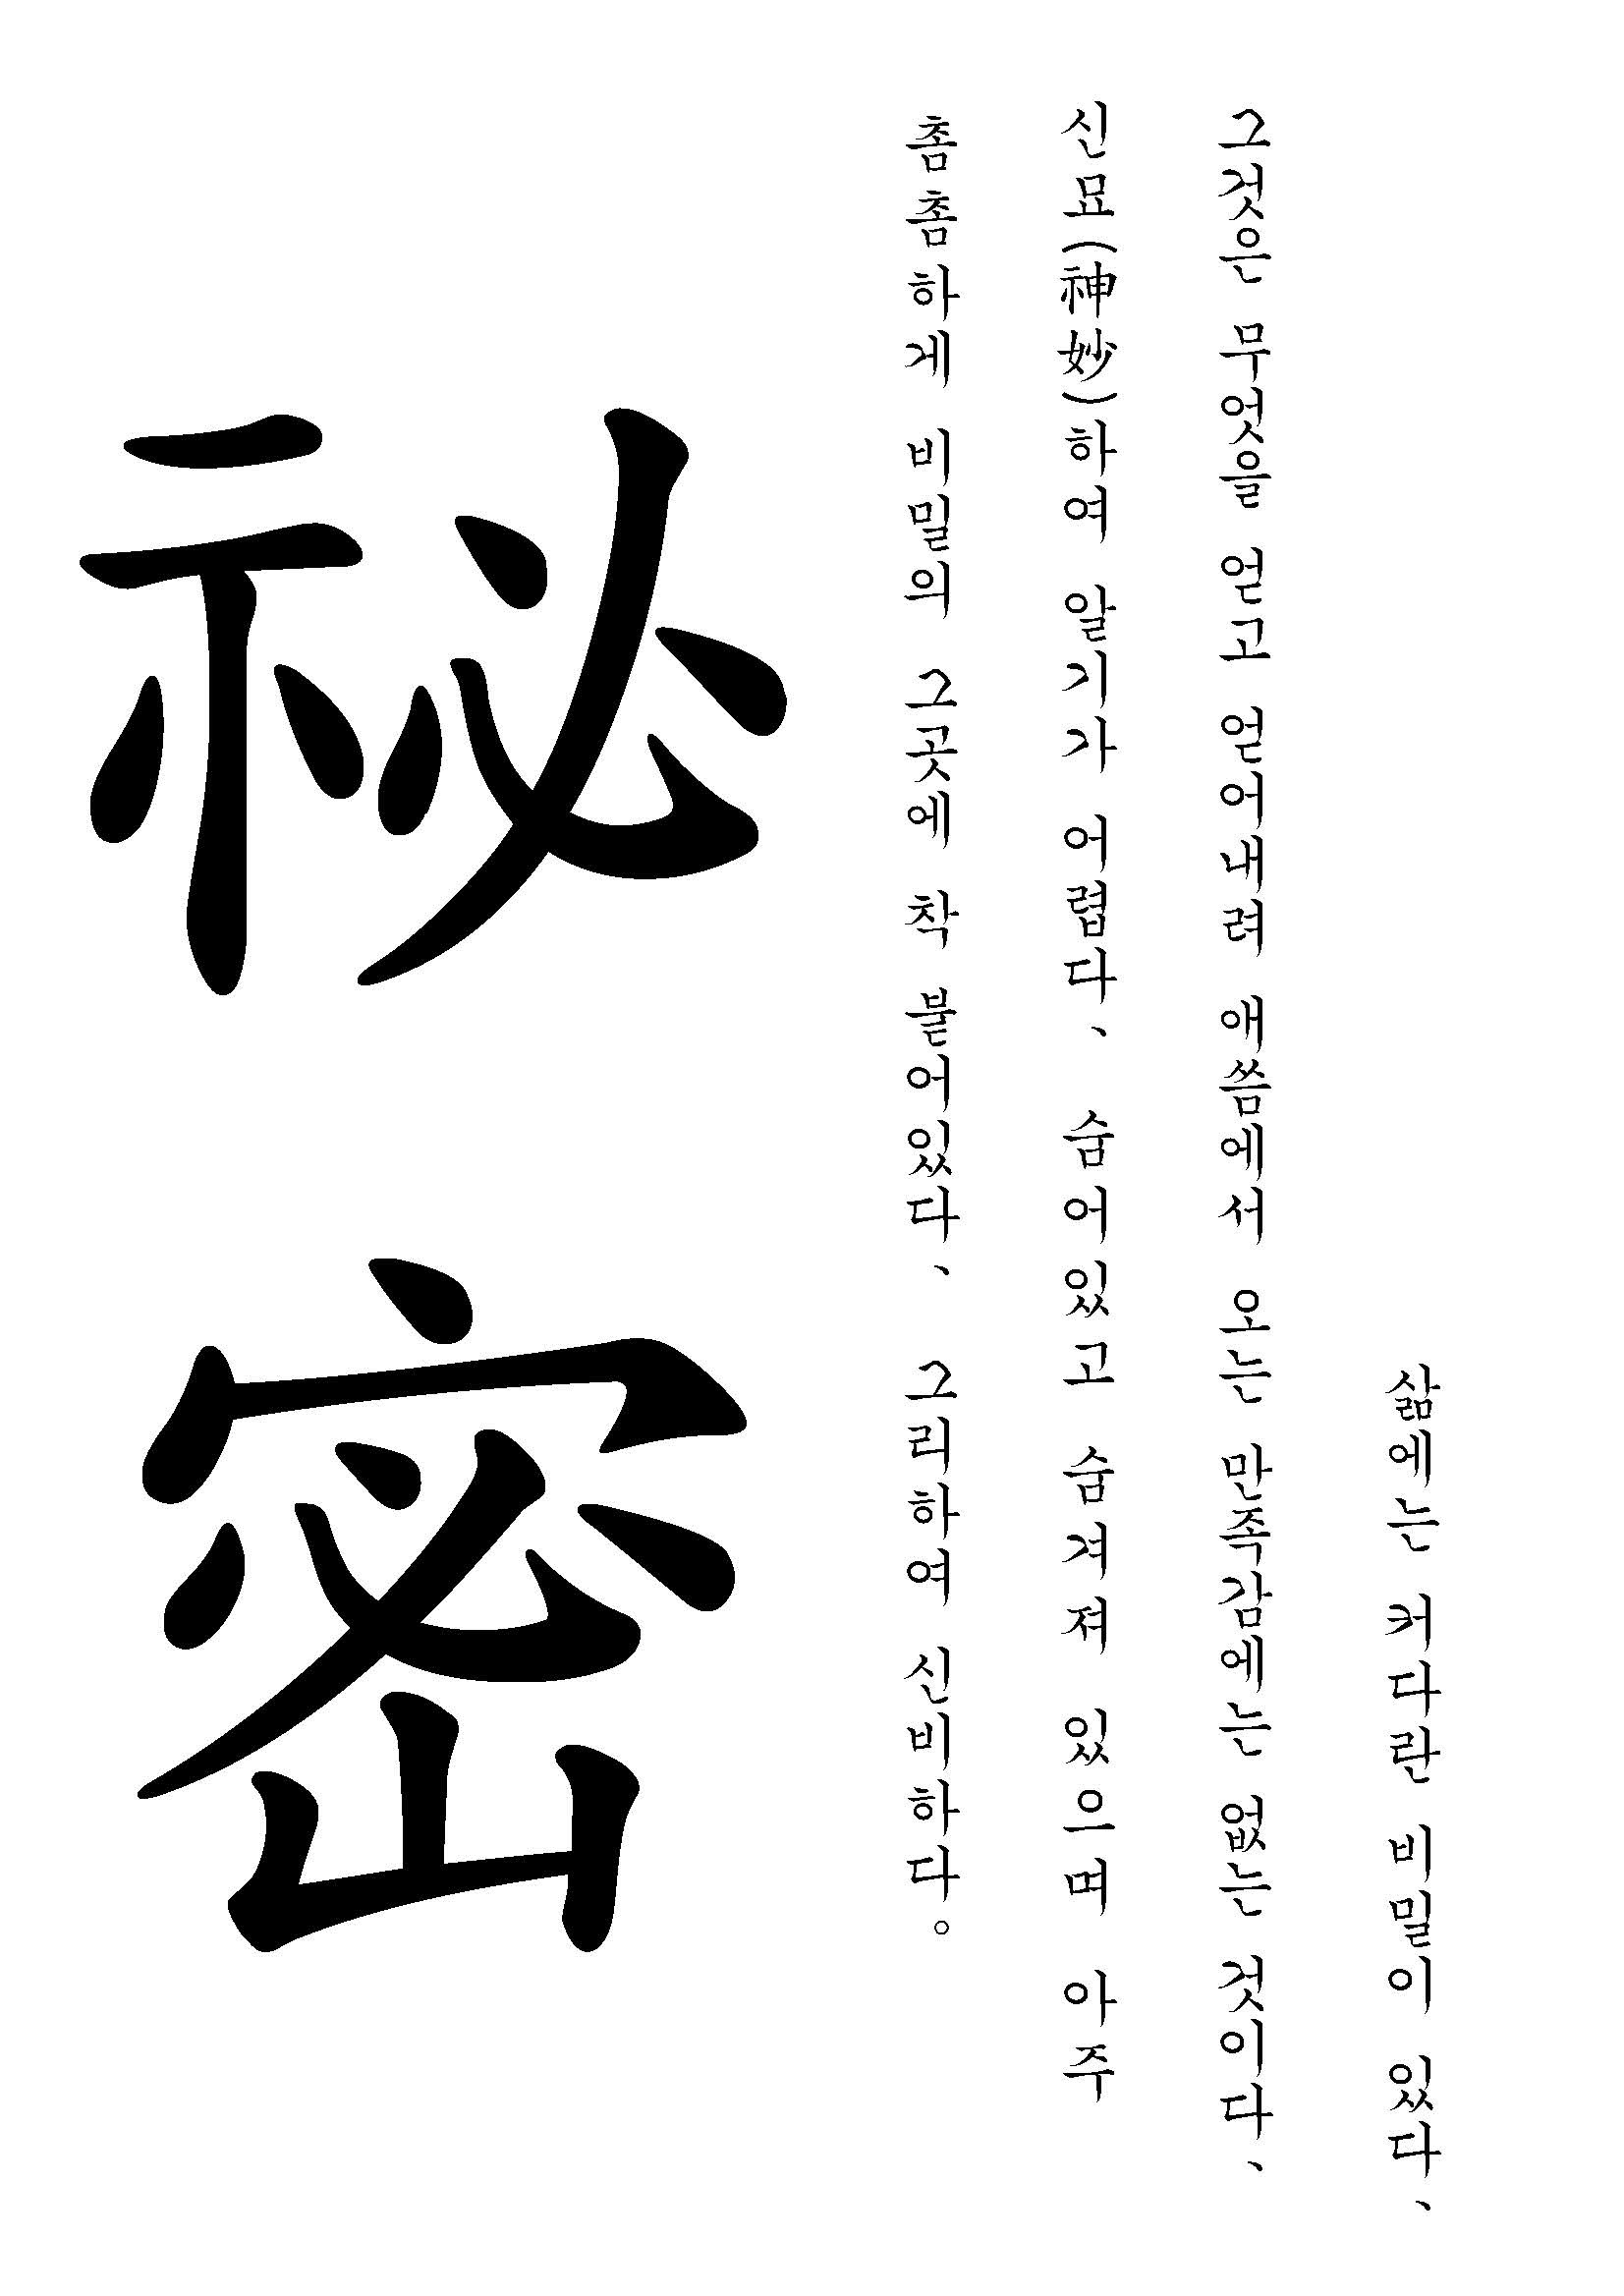 삶에는 커다란 비밀이 있다、
그것은 무엇을 얻고 얻어내려 애씀에서 오는 만족감에는 없는 것이다、
신묘(神妙)하여 알기가 어렵다、 숨어있고 숨겨져 있으며 아주
촘촘하게 비밀의 그곳에 착 붙어있다、 그리하여 신비하다。
祕密